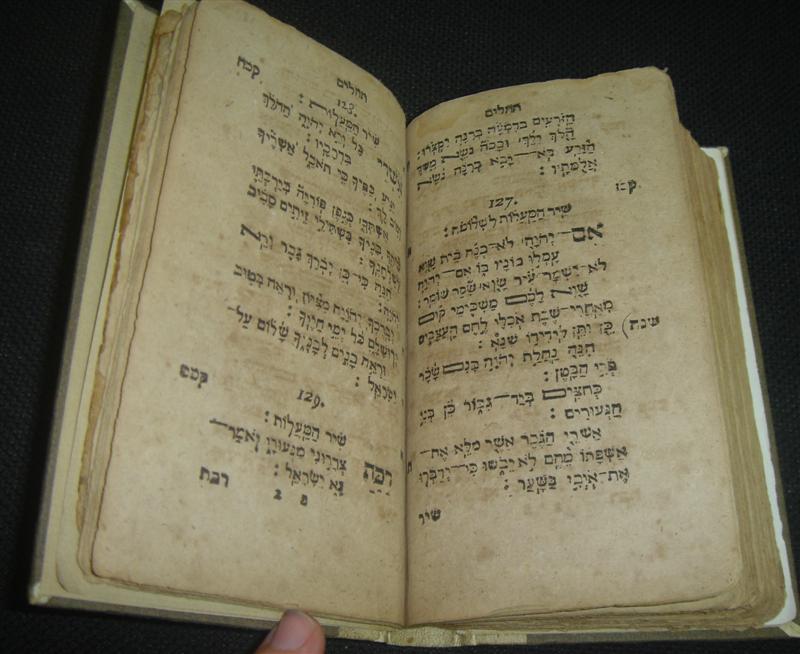 תהלים
הַזֹּרְעִים בְּדִמְעָה בְּרִנָּה יִקְצֹרוּ׃
הָלֹךְ יֵלֵךְ וּבָכֹה נֹשֵׂא מֶשֶׁךְ
הַזֶּרַע בֹּא־יָבֹא בְרִנָּה נֹשֵׂא
אֲלֻמֹּתָיו׃
קכז
127.
שִׁיר הַמַּעֲלוֹת לִשְׁלֹמֹה׃
אִם־יְהוָה לֹא־יִבְנֶה בַיִת שָׁוְא
עָמְלוּ בוֹנָיו בּוֹ אִם־יְהוָה
לֹא־יִשְׁמָר־עִיר שָׁוְא שָׁקַד שׁוֹמֵר׃
שָׁוְא לָכֶם מַשְׁכִּימֵי קוּם
מְאַחֲרֵי־שֶׁבֶת אֹכְלֵי לֶחֶם הָעֲצָבִים
כֵּן יִתֵּן לִידִידוֹ שֵׁנָא׃
הִנֵּה נַחֲלַת יְהוָה בָּנִים שָׂכָר
פְּרִי הַבָּטֶן׃
כְּחִצִּים בְּיַד־גִּבּוֹר כֵּן בְּנֵי
הַנְּעוּרִים׃
אַשְׁרֵי הַגֶּבֶר אֲשֶׁר מִלֵּא אֶת־
אַשְׁפָּתוֹ מֵהֶם לֹא יֵבֹשׁוּ כִּי־יְדַבְּרוּ
אֶת־אֹיְבִים בַּשָּׁעַר׃
שיר
תהלים
קכח
128.
שִׁיר הַמַּעֲלוֹת׃
אַשְׁרֵי כָּל יְרֵא יְהוָה הַהֹלֵךְ
בִּדְרָכָיו׃
יְגִיעַ כַּפֶּיךָ כִּי תֹאכֵל אַשְׁרֶיךָ
וְטוֹב לָךְ׃
אֶשְׁתְּךָ כְּגֶפֶן פֹּרִיָּה בְּיַרְכְּתֵי
בֵיתֶךָ בָּנֶיךָ כִּשְׁתִלֵי זֵיתִים סָבִיב
לְשֻׁלְחָנֶךָ׃
הִנֵּה כִי־כֵן יְבֹרַךְ גָּבֶר יְרֵא
יְהוָה׃
יְבָרֶכְךָ יְהוָה מִצִּיּוֹן וּרְאֵה בְּטוּב
יְרוּשָׁלָיִם כֹּל יְמֵי חַיֶּיךָ׃
וּרְאֵה בָנִים לְבָנֶיךָ שָׁלוֹם עַל־
יִשְׂרָאֵל׃
קכט
129.
שִׁיר הַמַּעֲלוֹת׃
רַבַּת צְרָרוּנִי מִנְּעוּרַי יֹאמַר־
נָא יִשְׂרָאֵל׃
פ 2 רבת